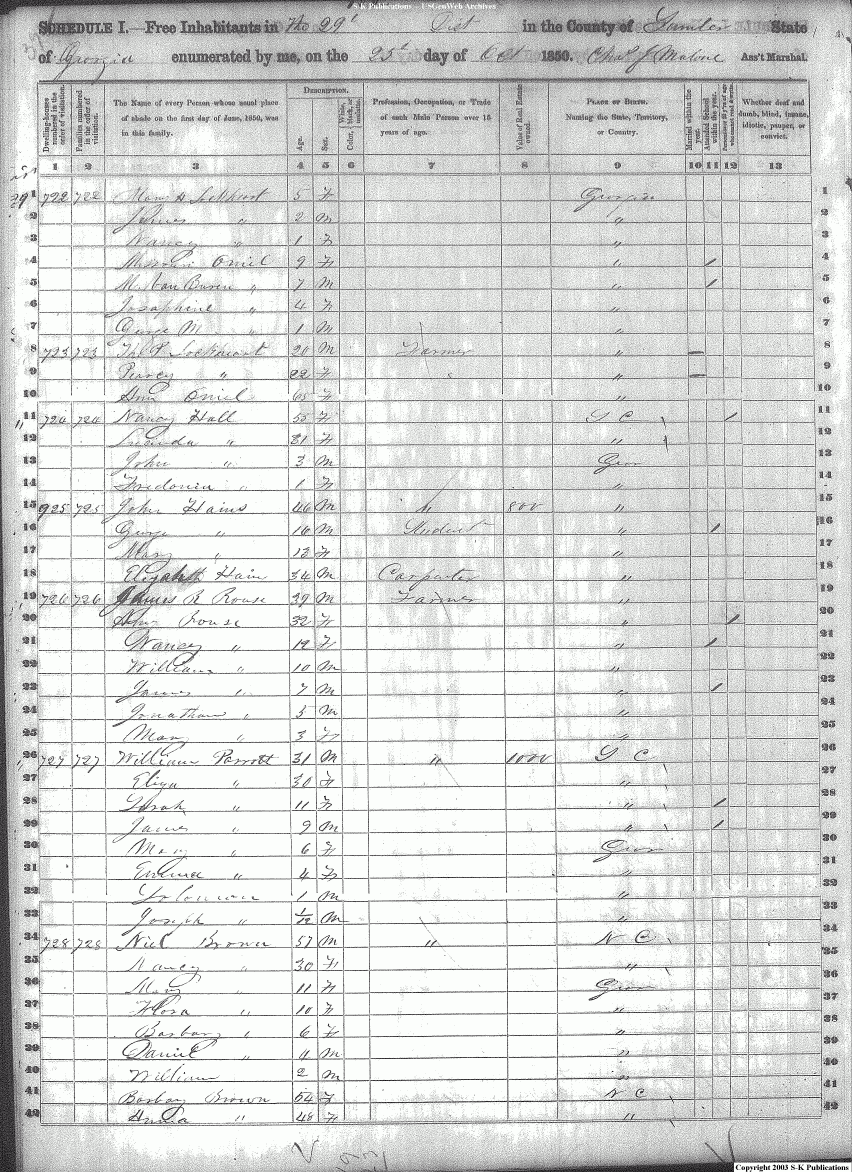 S-K Publications - USGenWeb Archives
SCHEDULE I. Free Inhabitants in The 29' Dist in the County of Sumter State
of Georgia enumerated by me, on the 25' day of Oct 1850. Chas J Malone Ass't Marshal.
Dwelling-houses numbered in the order of visitation. Families numbered in the order of visitation. The Name of every Person whose usual place of abode on the first day of June, 1850, was in this family. Description. Age. Sex. Color, White, black, or mulatto. Profession, Occupation, or Trade of each Male Person over 15 years of age. Value of Real Estate owned. Place of Birth. Naming the State, Territory, or Country. Married within the year. Attended School within the year. Persons over 20 y'rs of age who cannot read & write. Whether deaf and dumb, blind, insane, idiotic, pauper, or convict.
1 2 3 4 5 6 7 8 9 10 11 12 13
1 722 722 Mary A Lockheart 5 F Georgia 1
2 James " 2 M " 2
3 Nancy " 1 F " 3
4 Missouri Oniel 9 F " / 4
5 M. Van Buren " 7 M " / 5
6 Josephine " 4 F " 6
7 George M " 1 M " 7
8 723 723 Thos P Lockheart 20 M Farmer " — 8
9 Percy " 22 F " — 9
10 Ann Oniel 65 F " 10
11 724 724 Nancy Hall 55 F S C / 11
12 Lucinda " 31 F " 12
13 John " 3 M Geor 13
14 Fredonia " 1 F " 14
15 925 725 John Hains 46 M " 800 " 15
16 George " 16 M Student " / 16
17 Mary " 12 F " 17
18 Elijah Hain 34 M Carpenter " 18
19 726 726 James R Rouse 39 M Farmer " 19
20 Ann Rouse 32 F " / 20
21 Nancy " 12 F " / 21
22 William " 10 M " 22
23 James " 7 M " / 23
24 Jonathan " 5 M " 24
25 Mary " 3 F " 25
26 727 727 William Parrott 31 M " 1000 S C 26
27 Eliza " 30 F " 27
28 Sarah " 11 F " / 28
29 James " 9 M " / 29
30 Mary " 6 F Geor 30
31 Emma " 4 F " 31
32 Solomon 1 M " 32
33 Joseph " 1/12 M " 33
34 728 728 Niel Brown 57 M " N C 34
35 Nancy " 30 F " 35
36 Mary " 11 F Geor 36
37 Flora " 10 F " 37
38 Barbary " 6 F " 38
39 Daniel " 4 M " 39
40 William 2 M " 40
41 Barbay Brown 54 F N C 41
42 " 48 F " 42
Copyright 2003 S-K Publications